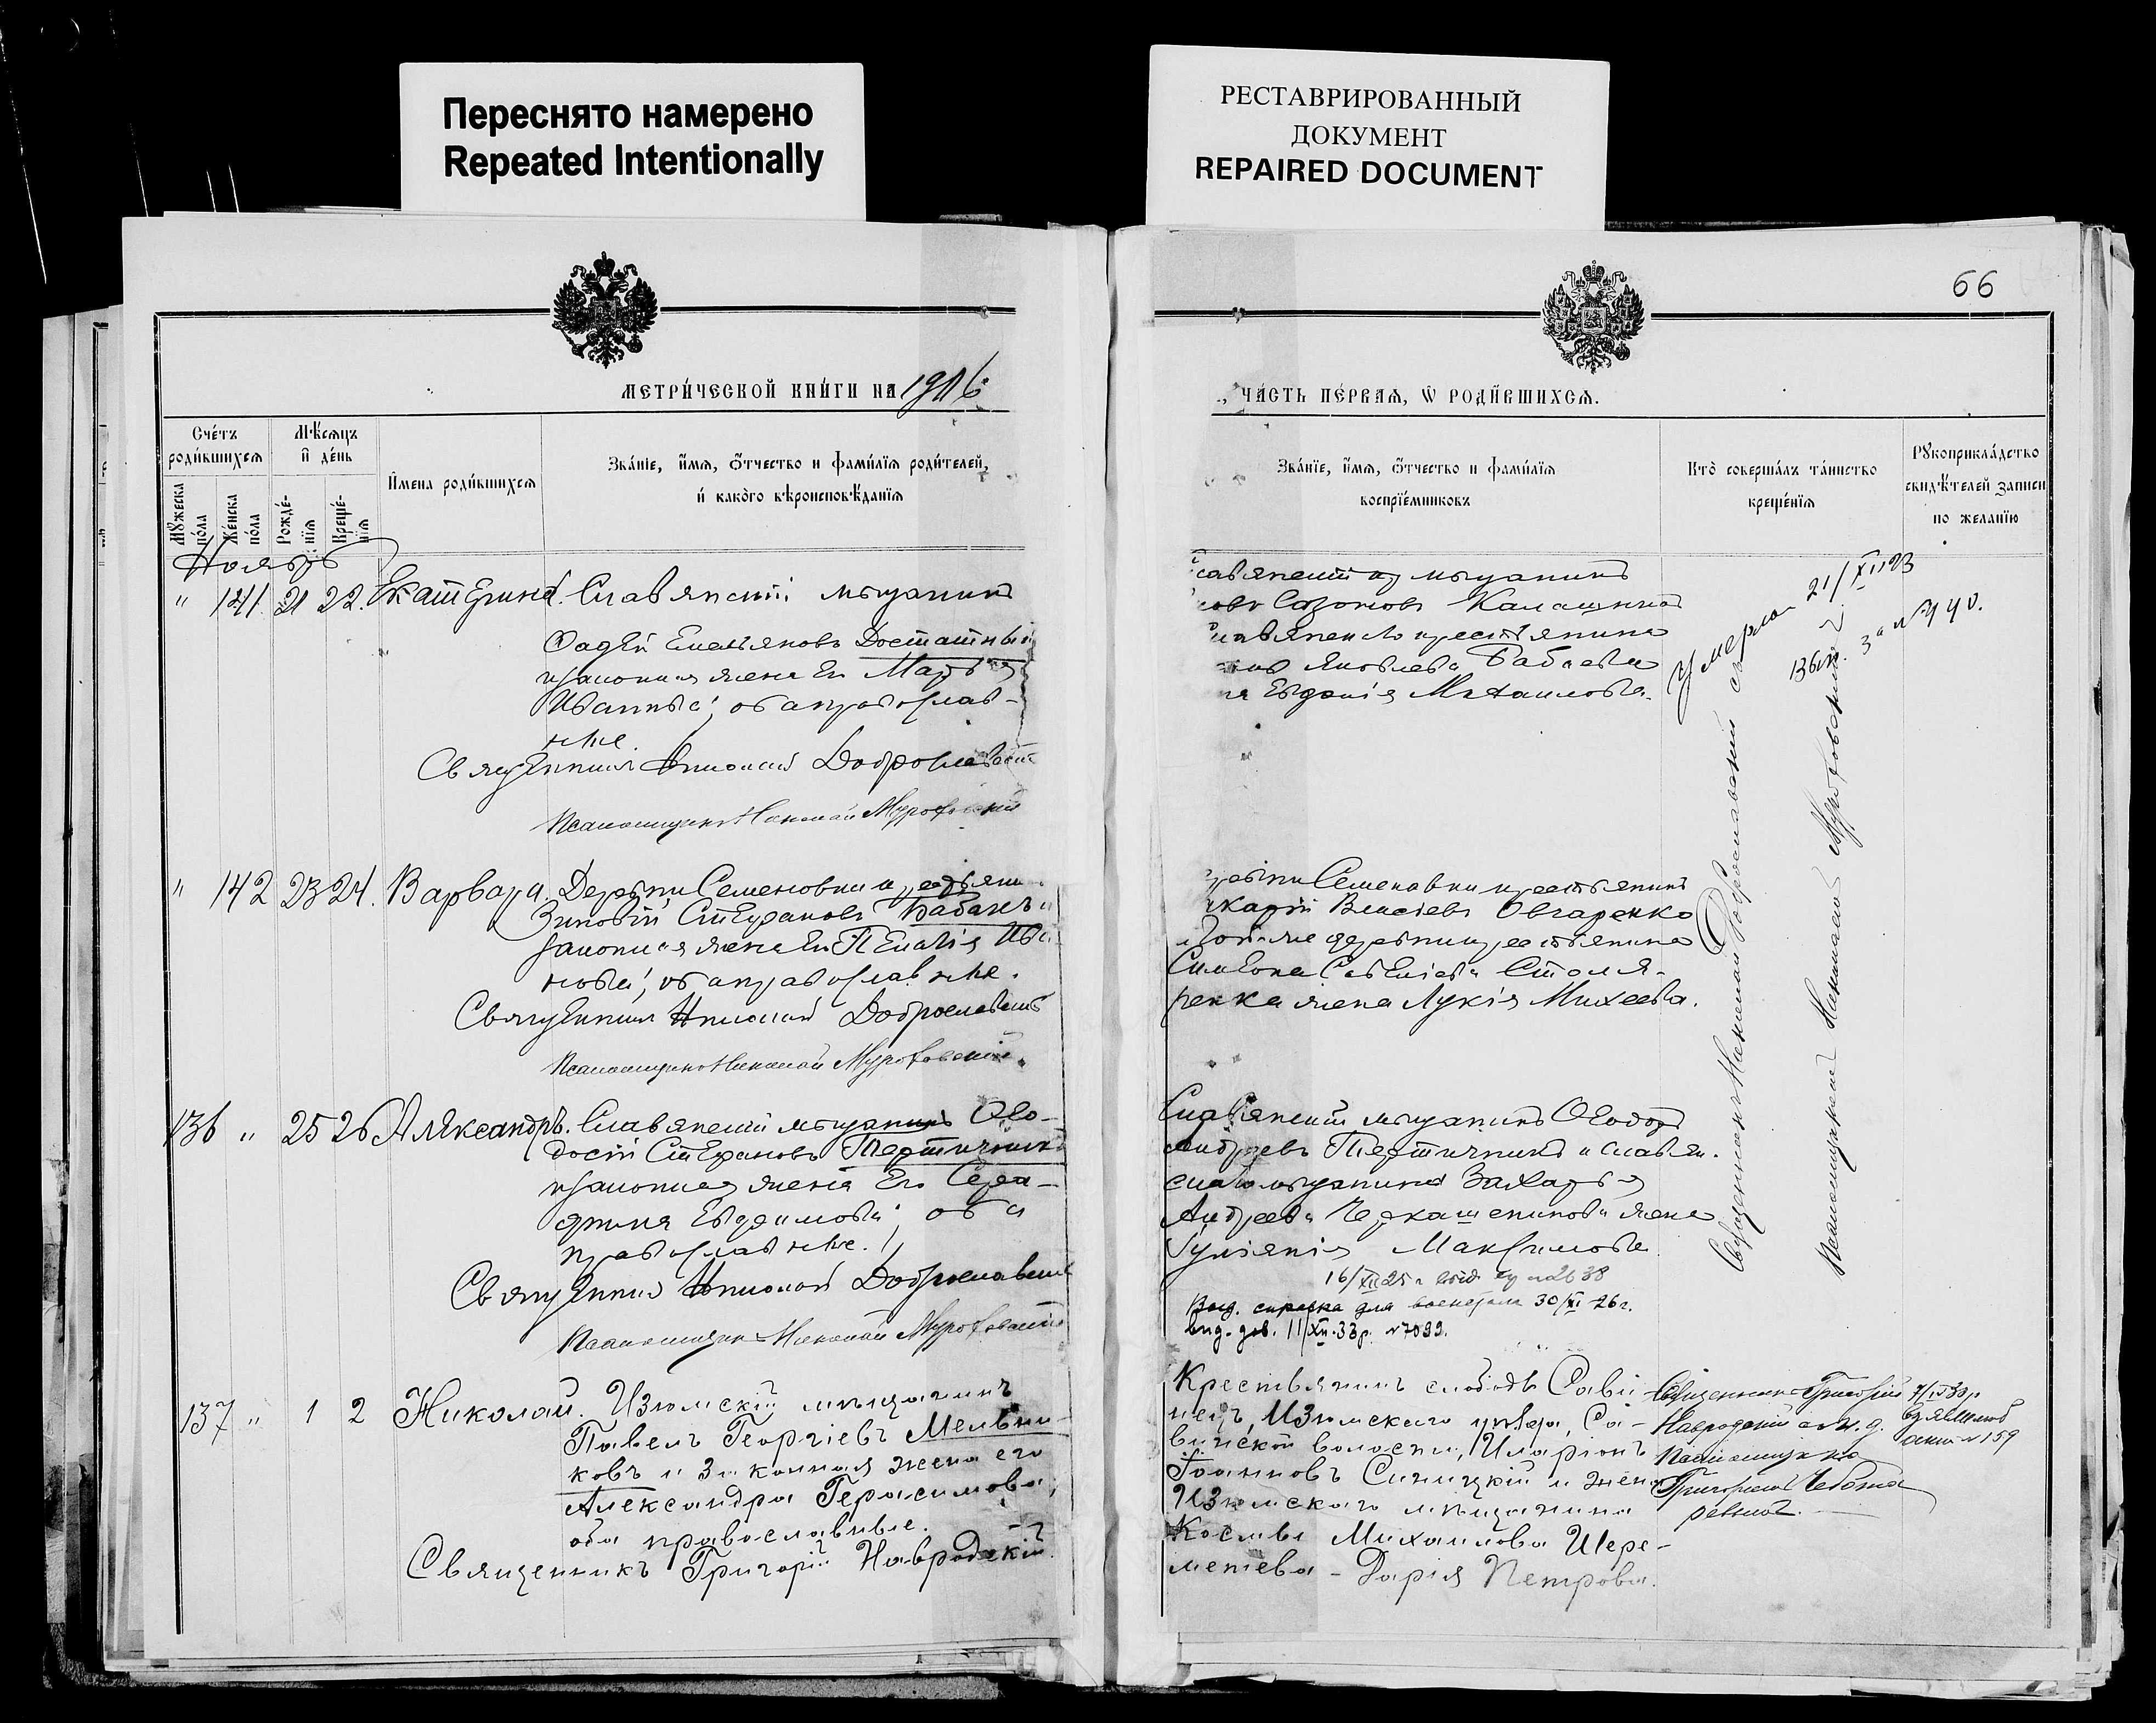 Переснято намерено
Repeated Intentionally
РЕСТАВРИРОВАННЫЙ
ДОКУМЕНТ
REPAIRED DOCUMENT
66
МЕТРИ́ЧЕСКОЙ КНИ́ГИ НА 1916
ЧА́СТЬ ПЕ́РВАЯ, Ѡ РОДИ́ВШИХСЯ.
Сче́тъ
роди́вшихся
Мѣ́сяцъ
и де́нь
Му́жеска
по́ла
Же́нска
по́ла
Рожде́-
нія
Креще́-
нія
И́мена роди́вшихся
Зва́ніе, и́мя, о́тчество и фами́лїя роди́телей,
и како́го вѣроисповѣ́данїя
Зва́нїе, и́мя, о́тчество и фами́лїя
воспрїе́мниковъ
Кто̀ соверша́лъ та́инство
креще́нїя
Рукоприкла́дство
свидѣ́телей записи
по жела́нїю
Ноябрь
" 141. 21 22. Екатерина. Славянскій мѣщанинъ
Фадѣй Емельяновъ Достатный
и законная жена его Марѳа
Иванова; оба православ-
ные.
Священникъ Николай Доброславскій
Псаломщикъ Николай Мурофовскій
мѣщанинъ
Сазоновъ Калашник
крестьянина
Яковлева Бабаева
Евдокія Михаилова.
Умерла 21/XII 23
за № 440.
" 142 23 24. Варвара. Деревни Семеновки крестьянин
Зиновій Стефановъ Бабакъ и
законная жена его Пелагія Ива
нова; оба православные.
Священникъ Николай Доброславскій
Псаломщикъ Николай Мурофовскій.
Семеновки крестьянинъ
Власіевъ Овчаренко
той же деревни крестьянина
Симеона Савеліева Столя-
ренка жена Лукія Михеева.
Священникъ Николай Доброславскій
Псаломщикъ Николай Мурофовскій
136 " 25 26 Александръ. Славянскій мѣщанинъ Ѳео-
досій Стефановъ Пертичник
и законная жена его Сера-
фима Евдокимова; оба
православные.
Священникъ Николай Доброславскій
Псаломщикъ Николай Мурофовскій
Славянскій мѣщанинъ Ѳеодоръ
Андреевъ Пертичникъ и славян.
скаго мѣщанина Захарія
Андреева Черкашенинова жена
Іуліанія Максимова.
Выд. справка для военстола 30/XI 26г.
вид. дов. 11/XII.33р. №7099.
137 " 1 2 Николай. Изюмскій мѣщанинъ
Павелъ Георгіевъ Мельни-
ковъ и законная жена его
Александра Герасимова,
оба православные.
Священникъ Григорій Навродскій.
Крестьянинъ слободы Сави
нецъ, Изюмскаго уѣзда, Са-
винской волости, Иларіонъ
Іоанновъ Синицкій и жена
Изюмскаго мѣщанина
Космы Михаилова Шере-
метева - Дарія Петрова.
Священникъ Григорій
Навродскій и и. д.
Псаломщика
Григорій
акт №159